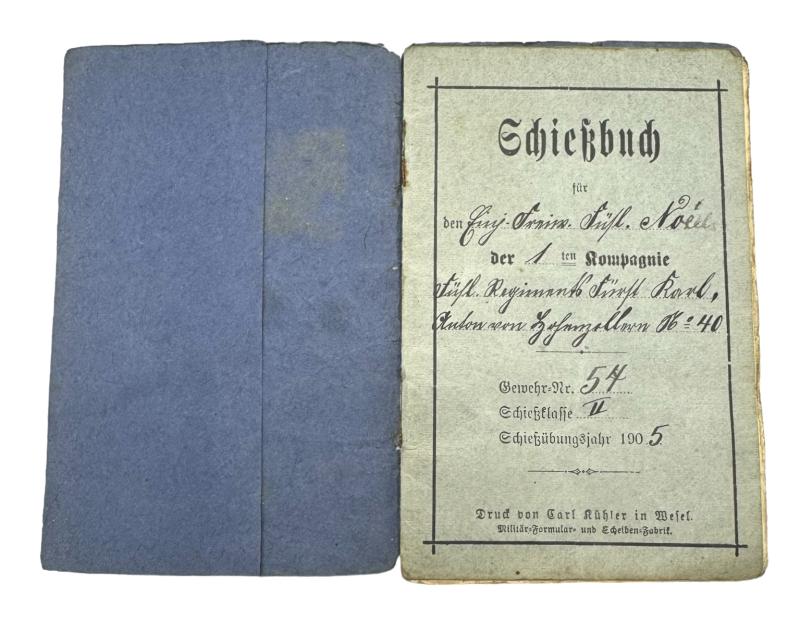 Schießbuch
für
den Einj. Freiw. Füsl.
der 1 ten Kompagnie
Füsl. Regiments Fürst Karl,
Anton von Hohenzollern No 40
Gewehr=Nr. 54
Schießklasse II
Schießübungsjahr 1905.
Druck von Carl Kühler in Wesel.
Militär=Formular= und Scheiben=Fabrik.